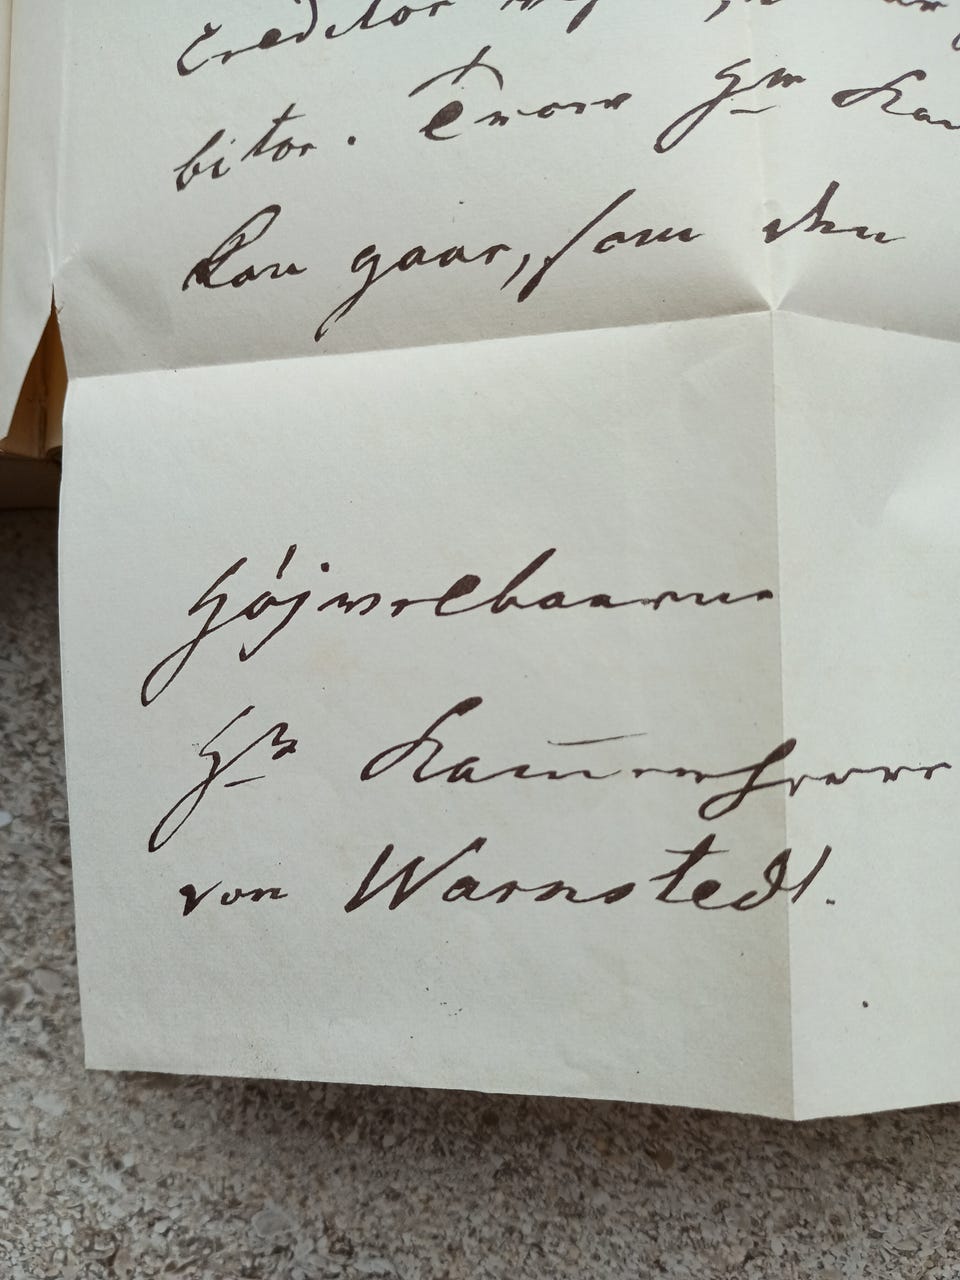 Creditor
bitor. Troer Hr Kam
Kan gaar, som den
Højvelbaarne
Hr Kam̄erherre
von Warnstedt.